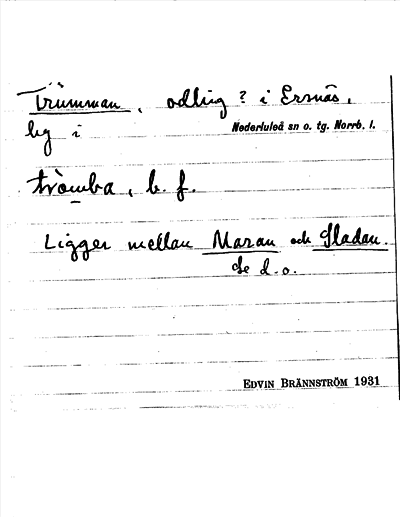 Trumman, odling? i Ersnäs,
by i Nederluleå sn o. tg. Norrb. l.
tròmba, b. f.
Ligger mellan Maran och Sladan.
Se d.o.
EDVIN BRÄNNSTRÖM 1931